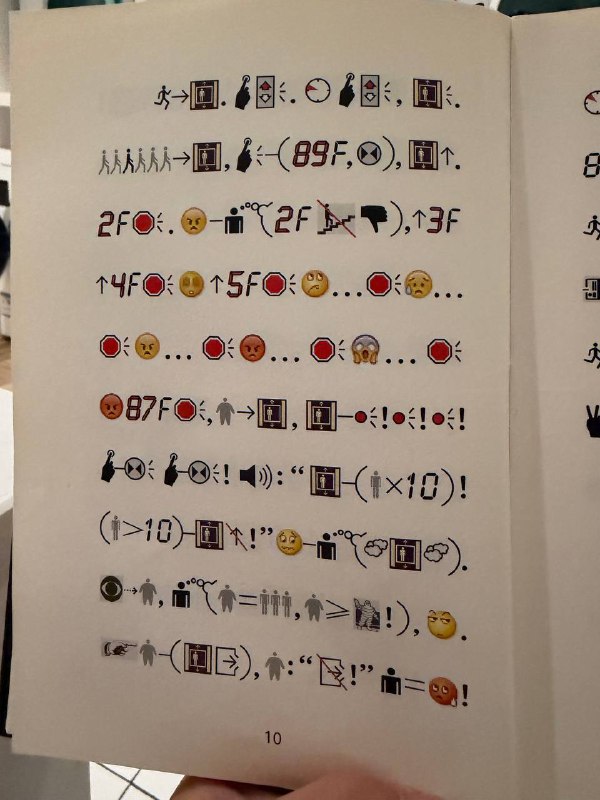 →. . , .
→, –(89F, ), ↑.
2F. –(2F ), ↑3F
↑4F ↑5F ... ...
... ... ...
87F, →, –!!!
– –! : “–(×10)!
(>10)–↑!” –().
→, (=, ≥!), .
–(), : “!” =!
10